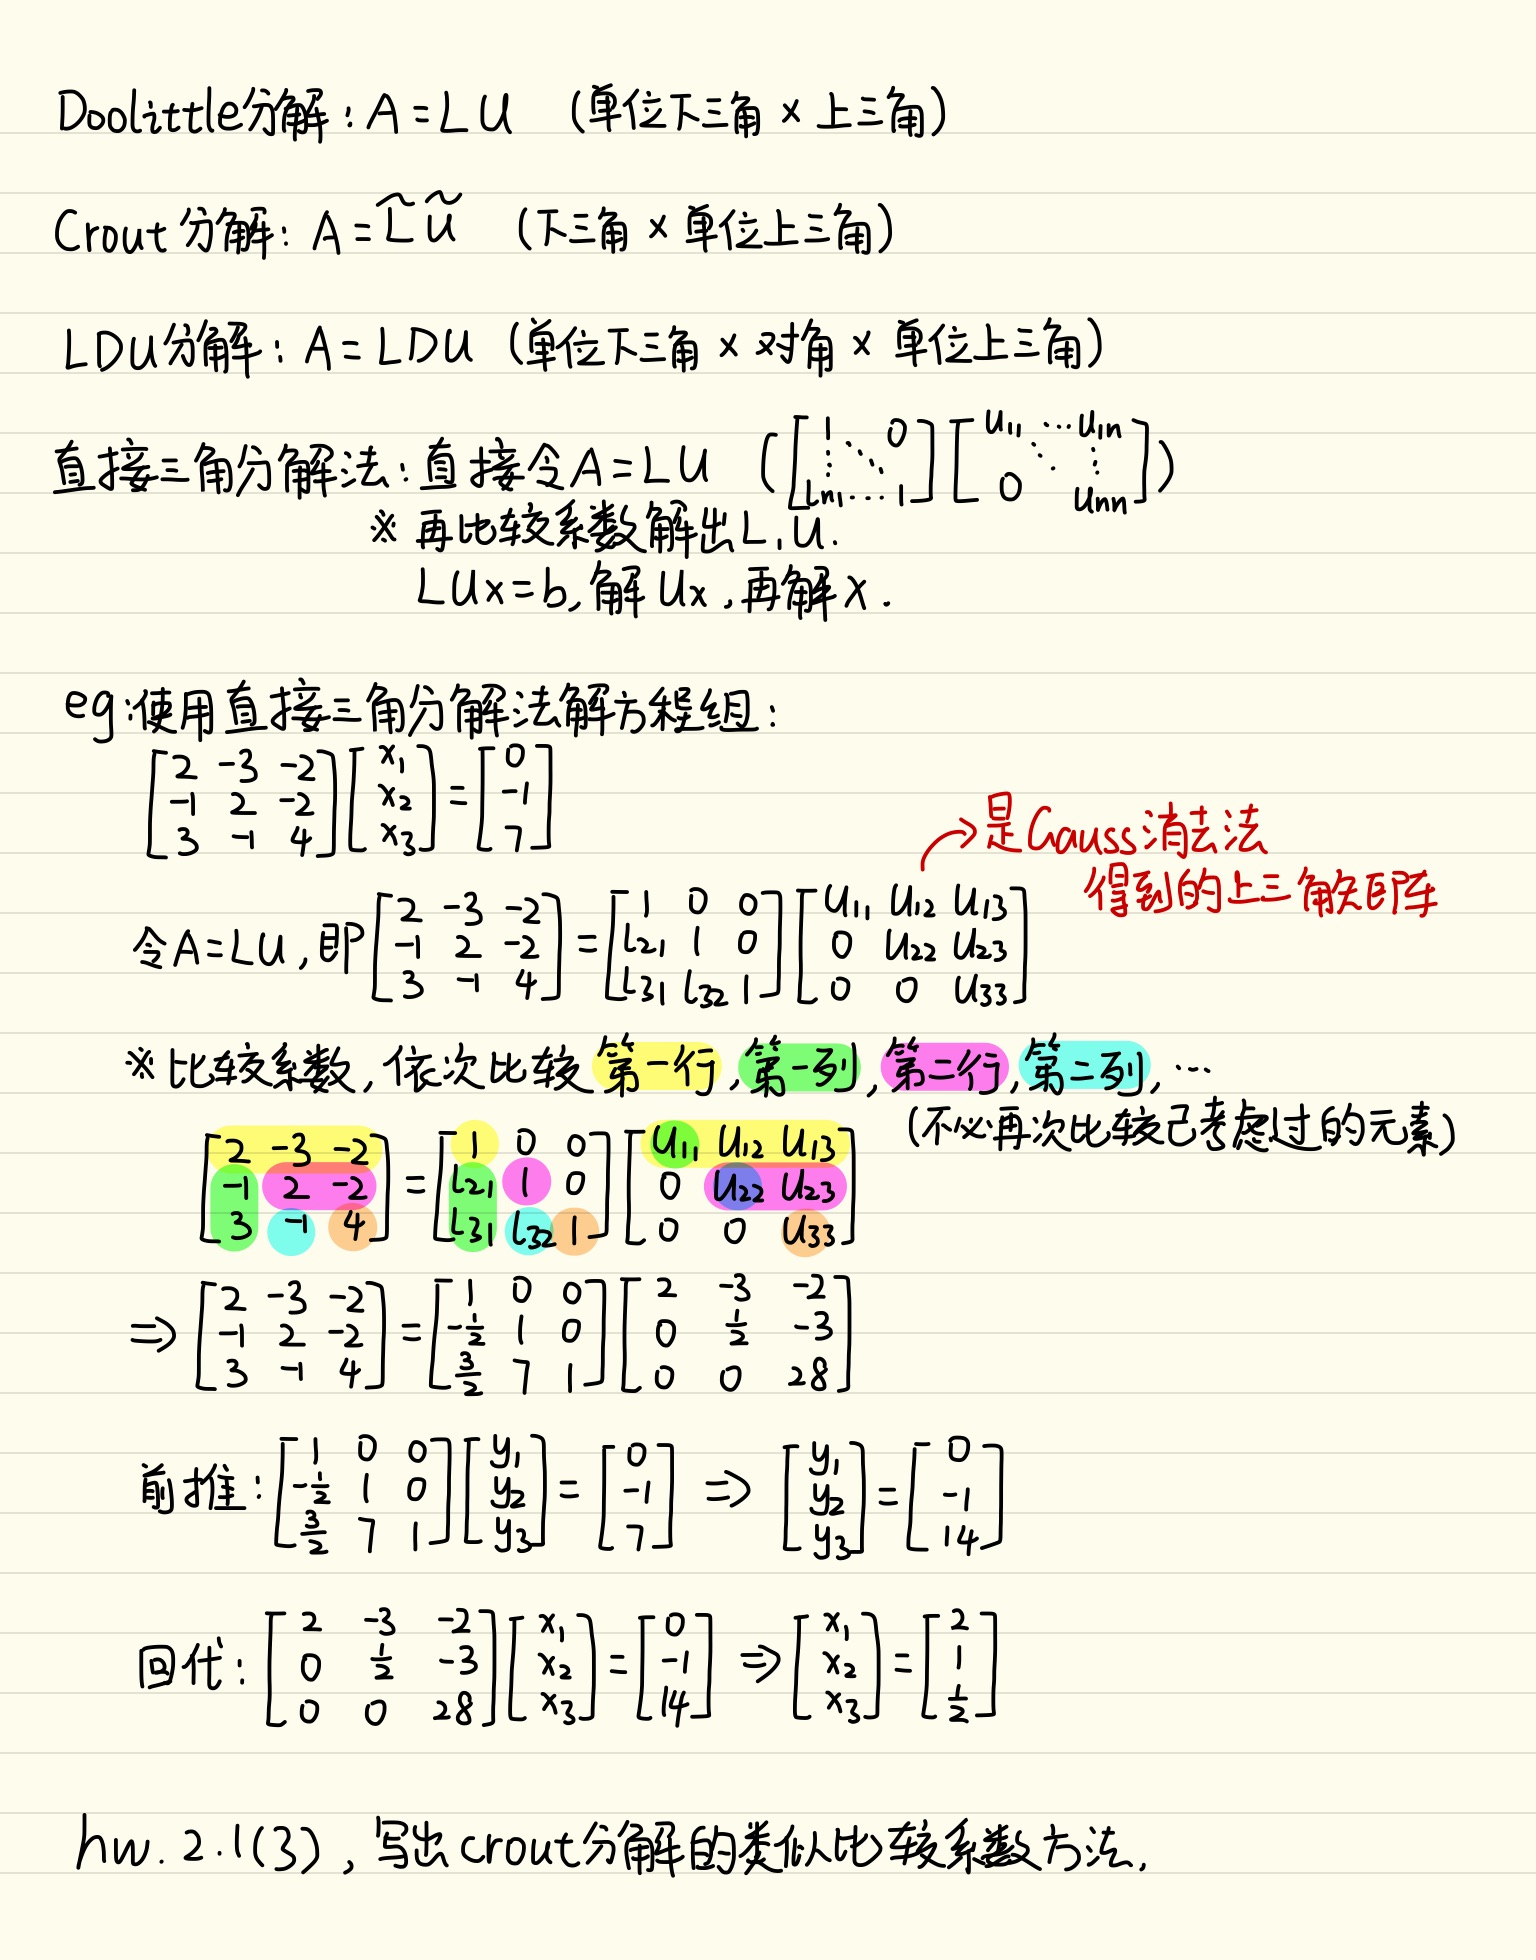 Doolittle分解: A=LU (单位下三角 × 上三角)
Crout分解: A=L̃Ũ (下三角 × 单位上三角)
LDU分解: A=LDU (单位下三角 × 对角 × 单位上三角)
直接三角分解法: 直接令A=LU ([1 ⋱ 0; ⋮ ⋱; Ln1 ⋯ 1][U11 ⋯ U1n; ⋱ ⋮; 0 Unn])
※ 再比较系数解出L,U.
LUx=b, 解Ux, 再解x.
eg: 使用直接三角分解法解方程组:
[2 -3 -2; -1 2 -2; 3 -1 4][x1; x2; x3]=[0; -1; 7]
→是Gauss消去法
得到的上三角矩阵
令A=LU, 即[2 -3 -2; -1 2 -2; 3 -1 4]=[1 0 0; L21 1 0; L31 L32 1][U11 U12 U13; 0 U22 U23; 0 0 U33]
※比较系数, 依次比较第一行, 第一列, 第二行, 第二列, ⋯
(不必再次比较已考虑过的元素)
[2 -3 -2; -1 2 -2; 3 -1 4]=[1 0 0; L21 1 0; L31 L32 1][U11 U12 U13; 0 U22 U23; 0 0 U33]
⇒[2 -3 -2; -1 2 -2; 3 -1 4]=[1 0 0; -1/2 1 0; 3/2 7 1][2 -3 -2; 0 1/2 -3; 0 0 28]
前推: [1 0 0; -1/2 1 0; 3/2 7 1][y1; y2; y3]=[0; -1; 7] ⇒ [y1; y2; y3]=[0; -1; 14]
回代: [2 -3 -2; 0 1/2 -3; 0 0 28][x1; x2; x3]=[0; -1; 14] ⇒[x1; x2; x3]=[2; 1; 1/2]
hw. 2.1(3), 写出crout分解的类似比较系数方法.